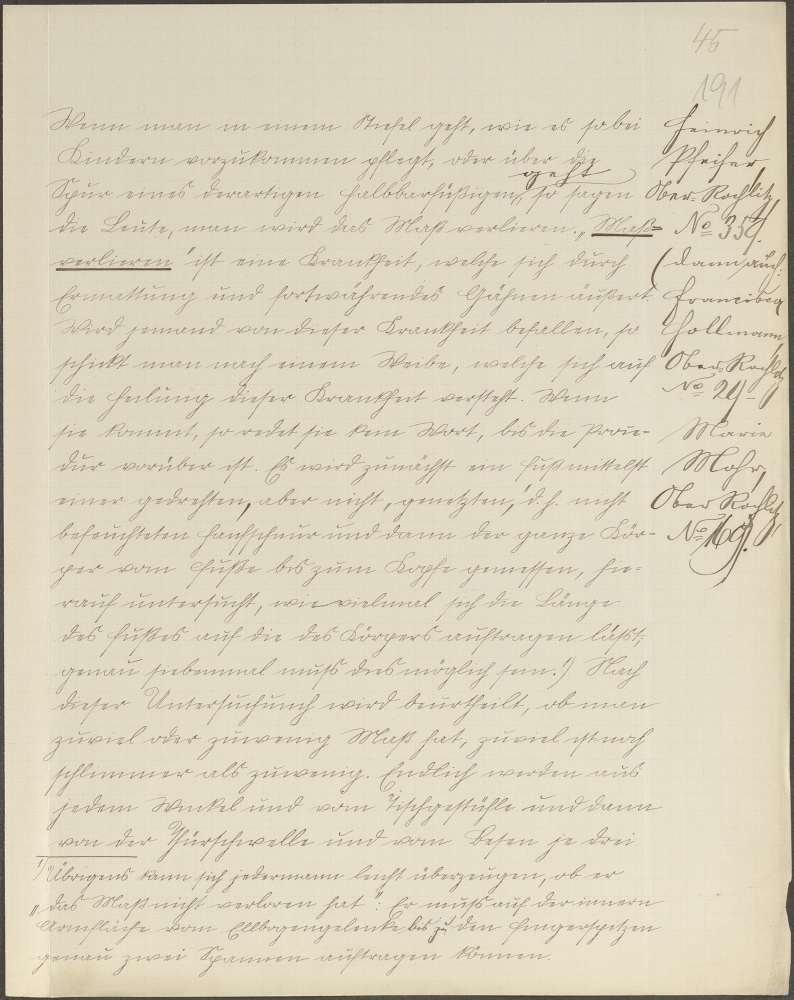 45
191
Wenn man in einem Stiefel geht, wie es so bei
Kindern vorzukommen pflegt, oder über die
Spur eines derartigen Halbbarfüßigen geht, so sagen
die Leute, man wird das Maß verlieren. „Maß-
verlieren" ist eine Krankheit, welche sich durch
Ermattung und fortwährendes Gähnen äußert.
Wird jemand von dieser Krankheit befallen, so
schickt man nach einem Weibe, welche sich auf
die Heilung dieser Krankheit versteht. Wenn
sie kommt, so redet sie kein Wort, bis die Proce-
dur vorüber ist. Es wird zunächst ein Fuß mittelst
einer gedrehten, aber nicht „genetzten", d.h. nicht
befeuchteten Hanfschnur und dann der ganze Kör-
per vom Fuße bis zum Kopfe gemessen, hie-
rauf untersucht, wie vielmal sich die Länge
des Fußes auf die des Körpers auftragen lässt;
genau siebenmal muss dies möglich sein.¹) Nach
dieser Untersuchunch wird beurtheilt, ob man
zuviel oder zuwenig Maß hat, zuviel ist noch
schlimmer als zuwenig. Endlich werden aus
jedem Winkel und vom Tischgestühle und dann
von der Thürschwelle und vom Besen je drei
¹) Übrigens kann sich jedermann leicht überzeugen, ob er
„das Maß nicht verloren hat": Er muss auf der innern
Armfläche vom Ellbogengelenke bis zu den Fingerspitzen
genau zwei Spannen auftragen können.
Heinrich
Pfeifer,
Ober-Rochlitz
No 359.
(dann auch:
Franziska
Hollmann,
Ober-Rochlitz
No 29-
Marie
Mohr,
Ober Rochlitz,
No 169).